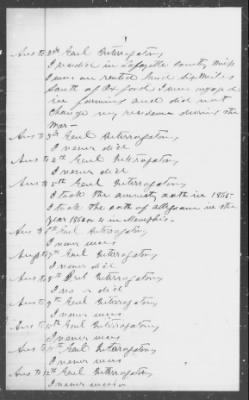 Ans to 2nd Genl Interrogatory
I resided in Lafayette County Miss
I was on rented land six miles
South of Oxford I was engaged
in farming and did not
change my residence during the
War —
Ans to 3rd Genl Interrogatory
I never did
Ans to 4th Genl Interrogatory
I never did
Ans to 5th Genl Interrogatory
I took the amnesty oath in 1865
I took the oath of allegiance in the
year 1863 or 4 in Memphis.
Ans to 6th Genl Interrogatory
I never was
Ans to 7th Genl Interrogatory
I never did
Ans to 8th Genl Interrogatory
I never did
Ans to 9th Genl Interrogatory
I never was
Ans to 10th Genl Interrogatory
I never was
Ans to 11th Genl Interrogatory
I never was
Ans to 12th Genl Interrogatory
I never was